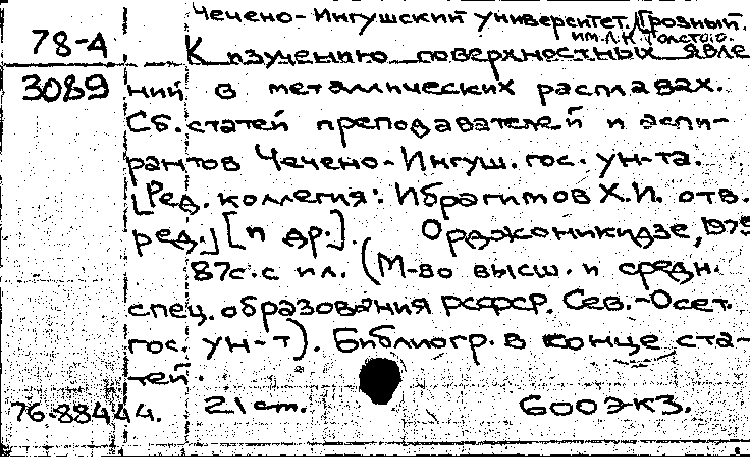 Чечено-Ингушский университет. Грозный.
им. Л.Н. Толстого.
78-4
К изучению поверхностных явле
3089
ний в металлических расплавах.
Сб. статей преподавателей и аспи-
рантов Чечено-Ингуш. гос. ун-та.
[Ред. коллегия: Ибрагимов Х.И. отв.
ред.] [и др.]. Орджоникидзе, 1975
87с. с ил. (М-во высш. и средн.
спец. образования РСФСР. Сев.-Осет.
гос. ун-т). Библиогр. в конце ста-
тей.
21 ст. 600экз.